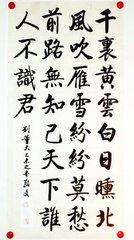 千裏黃雲白日曛北
風吹雁雪紛紛莫愁
前路無知己天下誰
人不識君
別董大 乙未之春